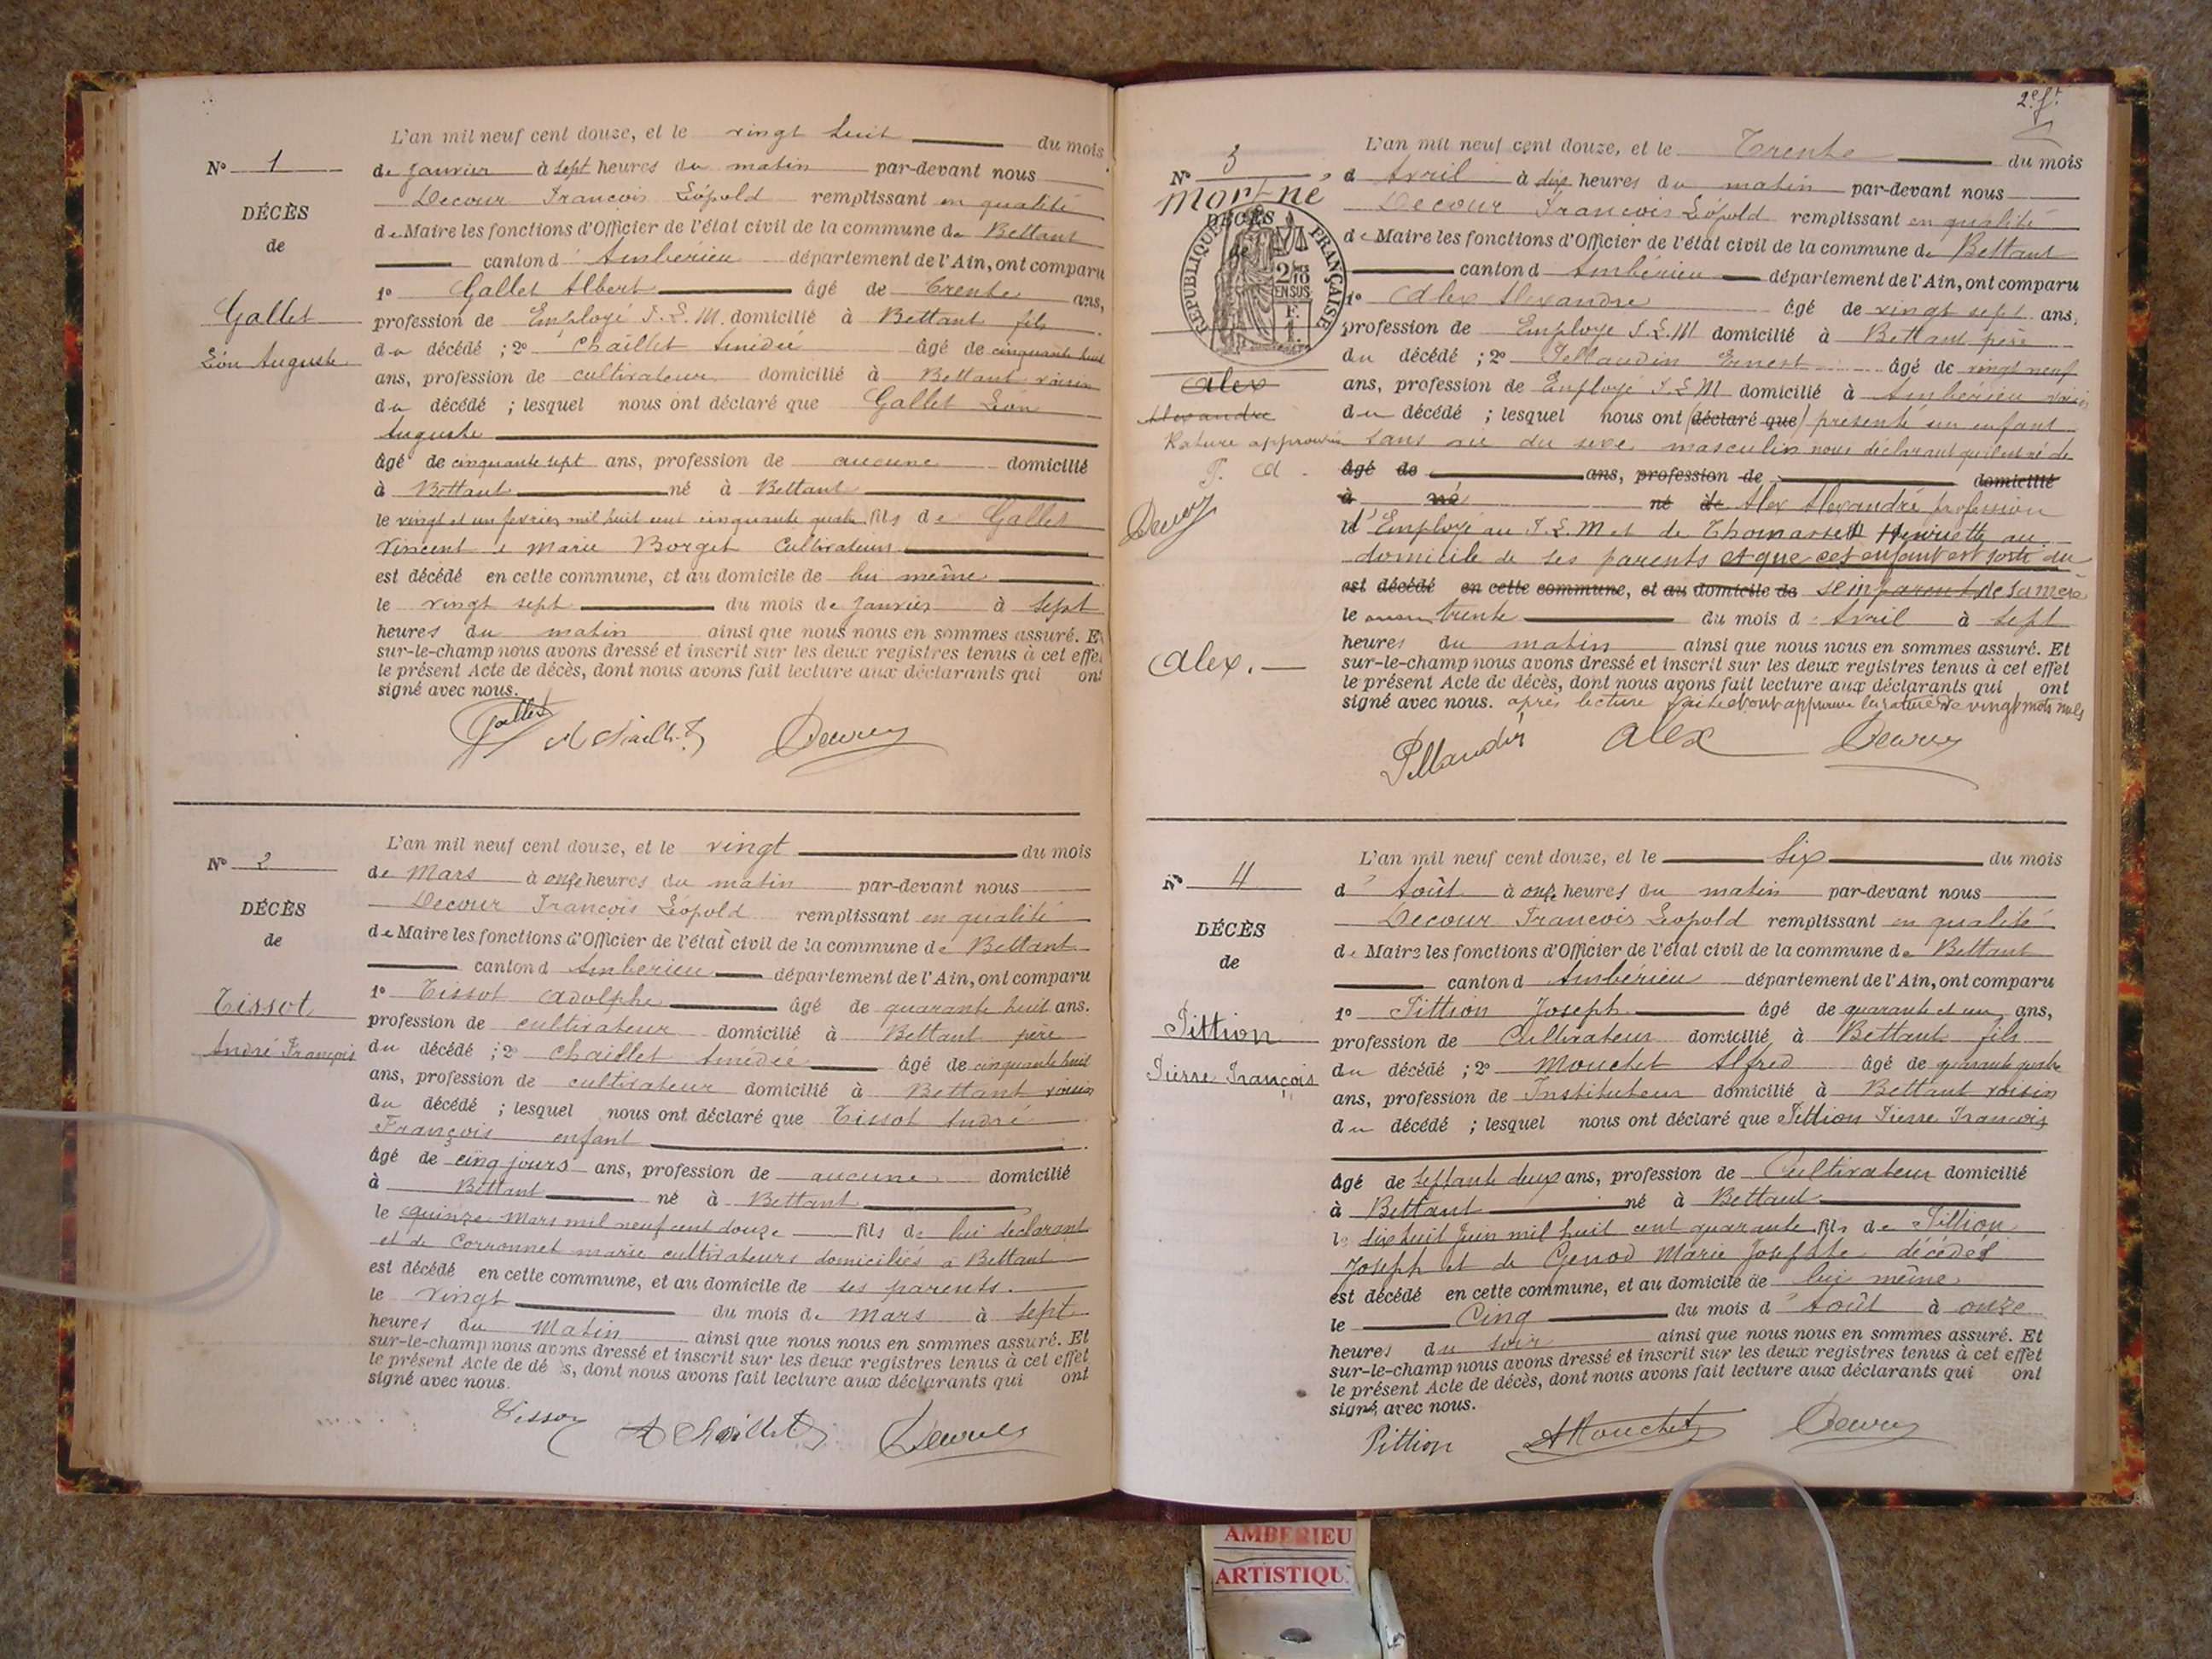 L'an mil neuf cent douze, et le vingt huit du mois
N° 1
de Janvier à sept heures du matin par-devant nous
Decour François Léopold remplissant en qualité
DÉCÈS
de Maire les fonctions d'Officier de l'état civil de la commune de Bettant
de
canton d'Ambérieu département de l'Ain, ont comparu
1° Gallet Albert âgé de Trente ans,
Gallet
profession de Employé P. L. M. domicilié à Bettant fils
Léon Auguste
du décédé ; 2° Chaillet Amédée âgé de cinquante huit
ans, profession de cultivateur domicilié à Bettant voisin
du décédé ; lesquel nous ont déclaré que Gallet Léon
Auguste
âgé de cinquante sept ans, profession de aucune domicilié
à Bettant né à Bettant
le vingt et un fevrier mil huit cent cinquante quatre fils de Gallet
Vincent e Marie Borget Cultivateurs
est décédé en cette commune, et au domicile de lui même
le vingt sept du mois de Janvier à Sept
heures du matin ainsi que nous nous en sommes assuré. Et
sur-le-champ nous avons dressé et inscrit sur les deux registres tenus à cet effet
le présent Acte de décès, dont nous avons fait lecture aux déclarants qui ont
signé avec nous.
Gallet A Chaillet Decour
L'an mil neuf cent douze, et le vingt du mois
N° 2
de Mars à onze heures du matin par-devant nous
Decour François Léopold remplissant en qualité
DÉCÈS
de Maire les fonctions d'Officier de l'état civil de la commune de Bettant
de
canton d Ambérieu département de l'Ain, ont comparu
1° Tissot Adolphe âgé de quarante huit ans.
Tissot
profession de cultivateur domicilié à Bettant père
André François
du décédé ; 2° Chaillet Amédée âgé de cinquante huit
ans, profession de cultivateur domicilié à Bettant voisin
du décédé ; lesquel nous ont déclaré que Tissot André
François enfant
âgé de cinq jours ans, profession de aucune domicilié
à Bettant né à Bettant
le quinze Mars mil neuf cent douze fils de lui déclarant
et de Corronnet marie cultivateurs domiciliés à Bettant
est décédé en cette commune, et au domicile de ses parents.
le Vingt du mois de Mars à sept
heures du Matin ainsi que nous nous en sommes assuré. Et
sur-le-champ nous avons dressé et inscrit sur les deux registres tenus à cet effet
le présent Acte de dé s, dont nous avons fait lecture aux déclarants qui ont
signé avec nous.
Tissot A Chaillet Decour
2e ft
L'an mil neuf cent douze, et le Trente du mois
N° 3
d'Avril à dix heures du matin par-devant nous
mort-né
Decour François Léopold remplissant en qualité
DÉCÈS
de Maire les fonctions d'Officier de l'état civil de la commune de Bettant
RÉPUBLIQUE FRANÇAISE
2/10 EN SUS
F. 1
canton d Ambérieu département de l'Ain, ont comparu
1° Alex Alexandre âgé de vingt sept ans,
profession de Employe P. L. M domicilié à Bettant père
du décédé ; 2° Pellaudin Ernest âgé de vingt neuf
Alex
ans, profession de Employé P L M domicilié à Ambérieu voisin
Alexandre
du décédé ; lesquel nous ont (déclaré que) présenté un enfant
Rature approuvée
sans vie du sexe masculin nous déclarant qu'il est né de
âgé de ans, profession de domicilié
à né né de Alex Alexandre profession
Decour
d'Employé au P. L. M et de Thomasset Henriette au
domicile de ses parents et que cet enfant est sorti du
est décédé en cette commune, et au domicile de sein de sa mère
le trente du mois d'Avril à Sept
heures du matin ainsi que nous nous en sommes assuré. Et
Alex.
sur-le-champ nous avons dressé et inscrit sur les deux registres tenus à cet effet
le présent Acte de décès, dont nous avons fait lecture aux déclarants qui ont
signé avec nous. après lecture faite et ont approuvé la rature de vingt mots nuls
Pellaudin Alex Decour
L'an mil neuf cent douze, et le Six du mois
N° 4
d'Août à onze heures du matin par-devant nous
Decour François Léopold remplissant en qualité
DÉCÈS
de Maire les fonctions d'Officier de l'état civil de la commune de Bettant
de
canton d Ambérieu département de l'Ain, ont comparu
1° Pittion Joseph âgé de quarante et un ans,
Pittion
profession de Cultivateur domicilié à Bettant fils
Pierre François
du décédé ; 2° Mouchet Alfred âgé de quarante quatre
ans, profession de Instituteur domicilié à Bettant voisin
du décédé ; lesquel nous ont déclaré que Pittion Pierre François
âgé de Septante deux ans, profession de Cultivateur domicilié
à Bettant né à Bettant
le dix huit Juin mil huit cent quarante fils de Pittion
Joseph et de Genod Marie Josephte décédés
est décédé en cette commune, et au domicile de lui même
le Cinq du mois d'Août à onze
heures du soir ainsi que nous nous en sommes assuré. Et
sur-le-champ nous avons dressé et inscrit sur les deux registres tenus à cet effet
le présent Acte de décès, dont nous avons fait lecture aux déclarants qui ont
signé avec nous.
Pittion AMouchet Decour
AMBERIEU
ARTISTIQU